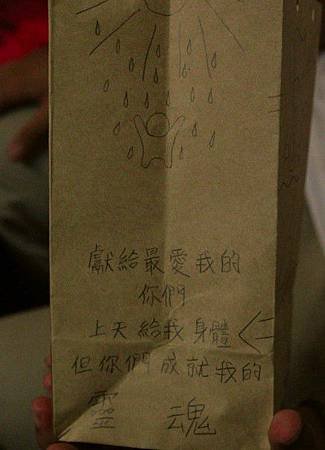 獻給最愛我的
你們
上天給我身體
但你們成就我的
靈魂